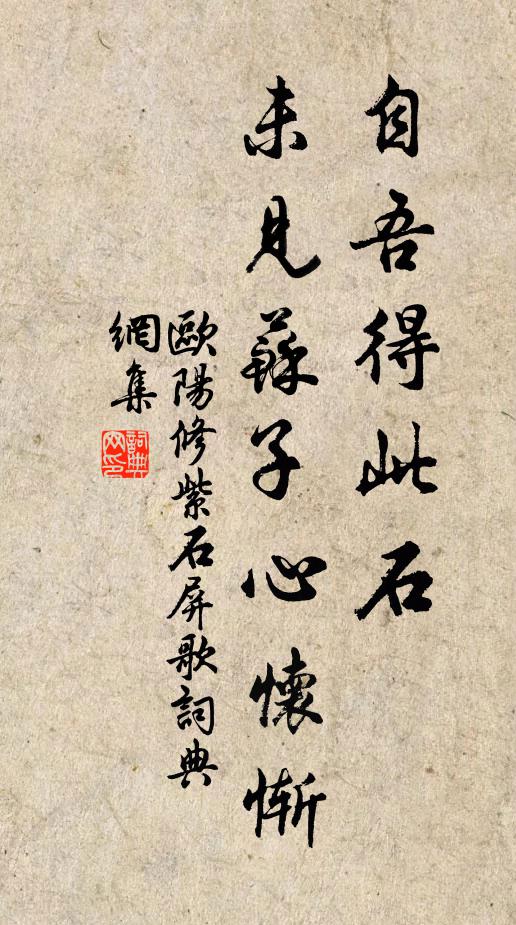 自吾得此石
未見蘇子心懷慚
歐陽修紫石屏歌詞典
網集
詞典網印